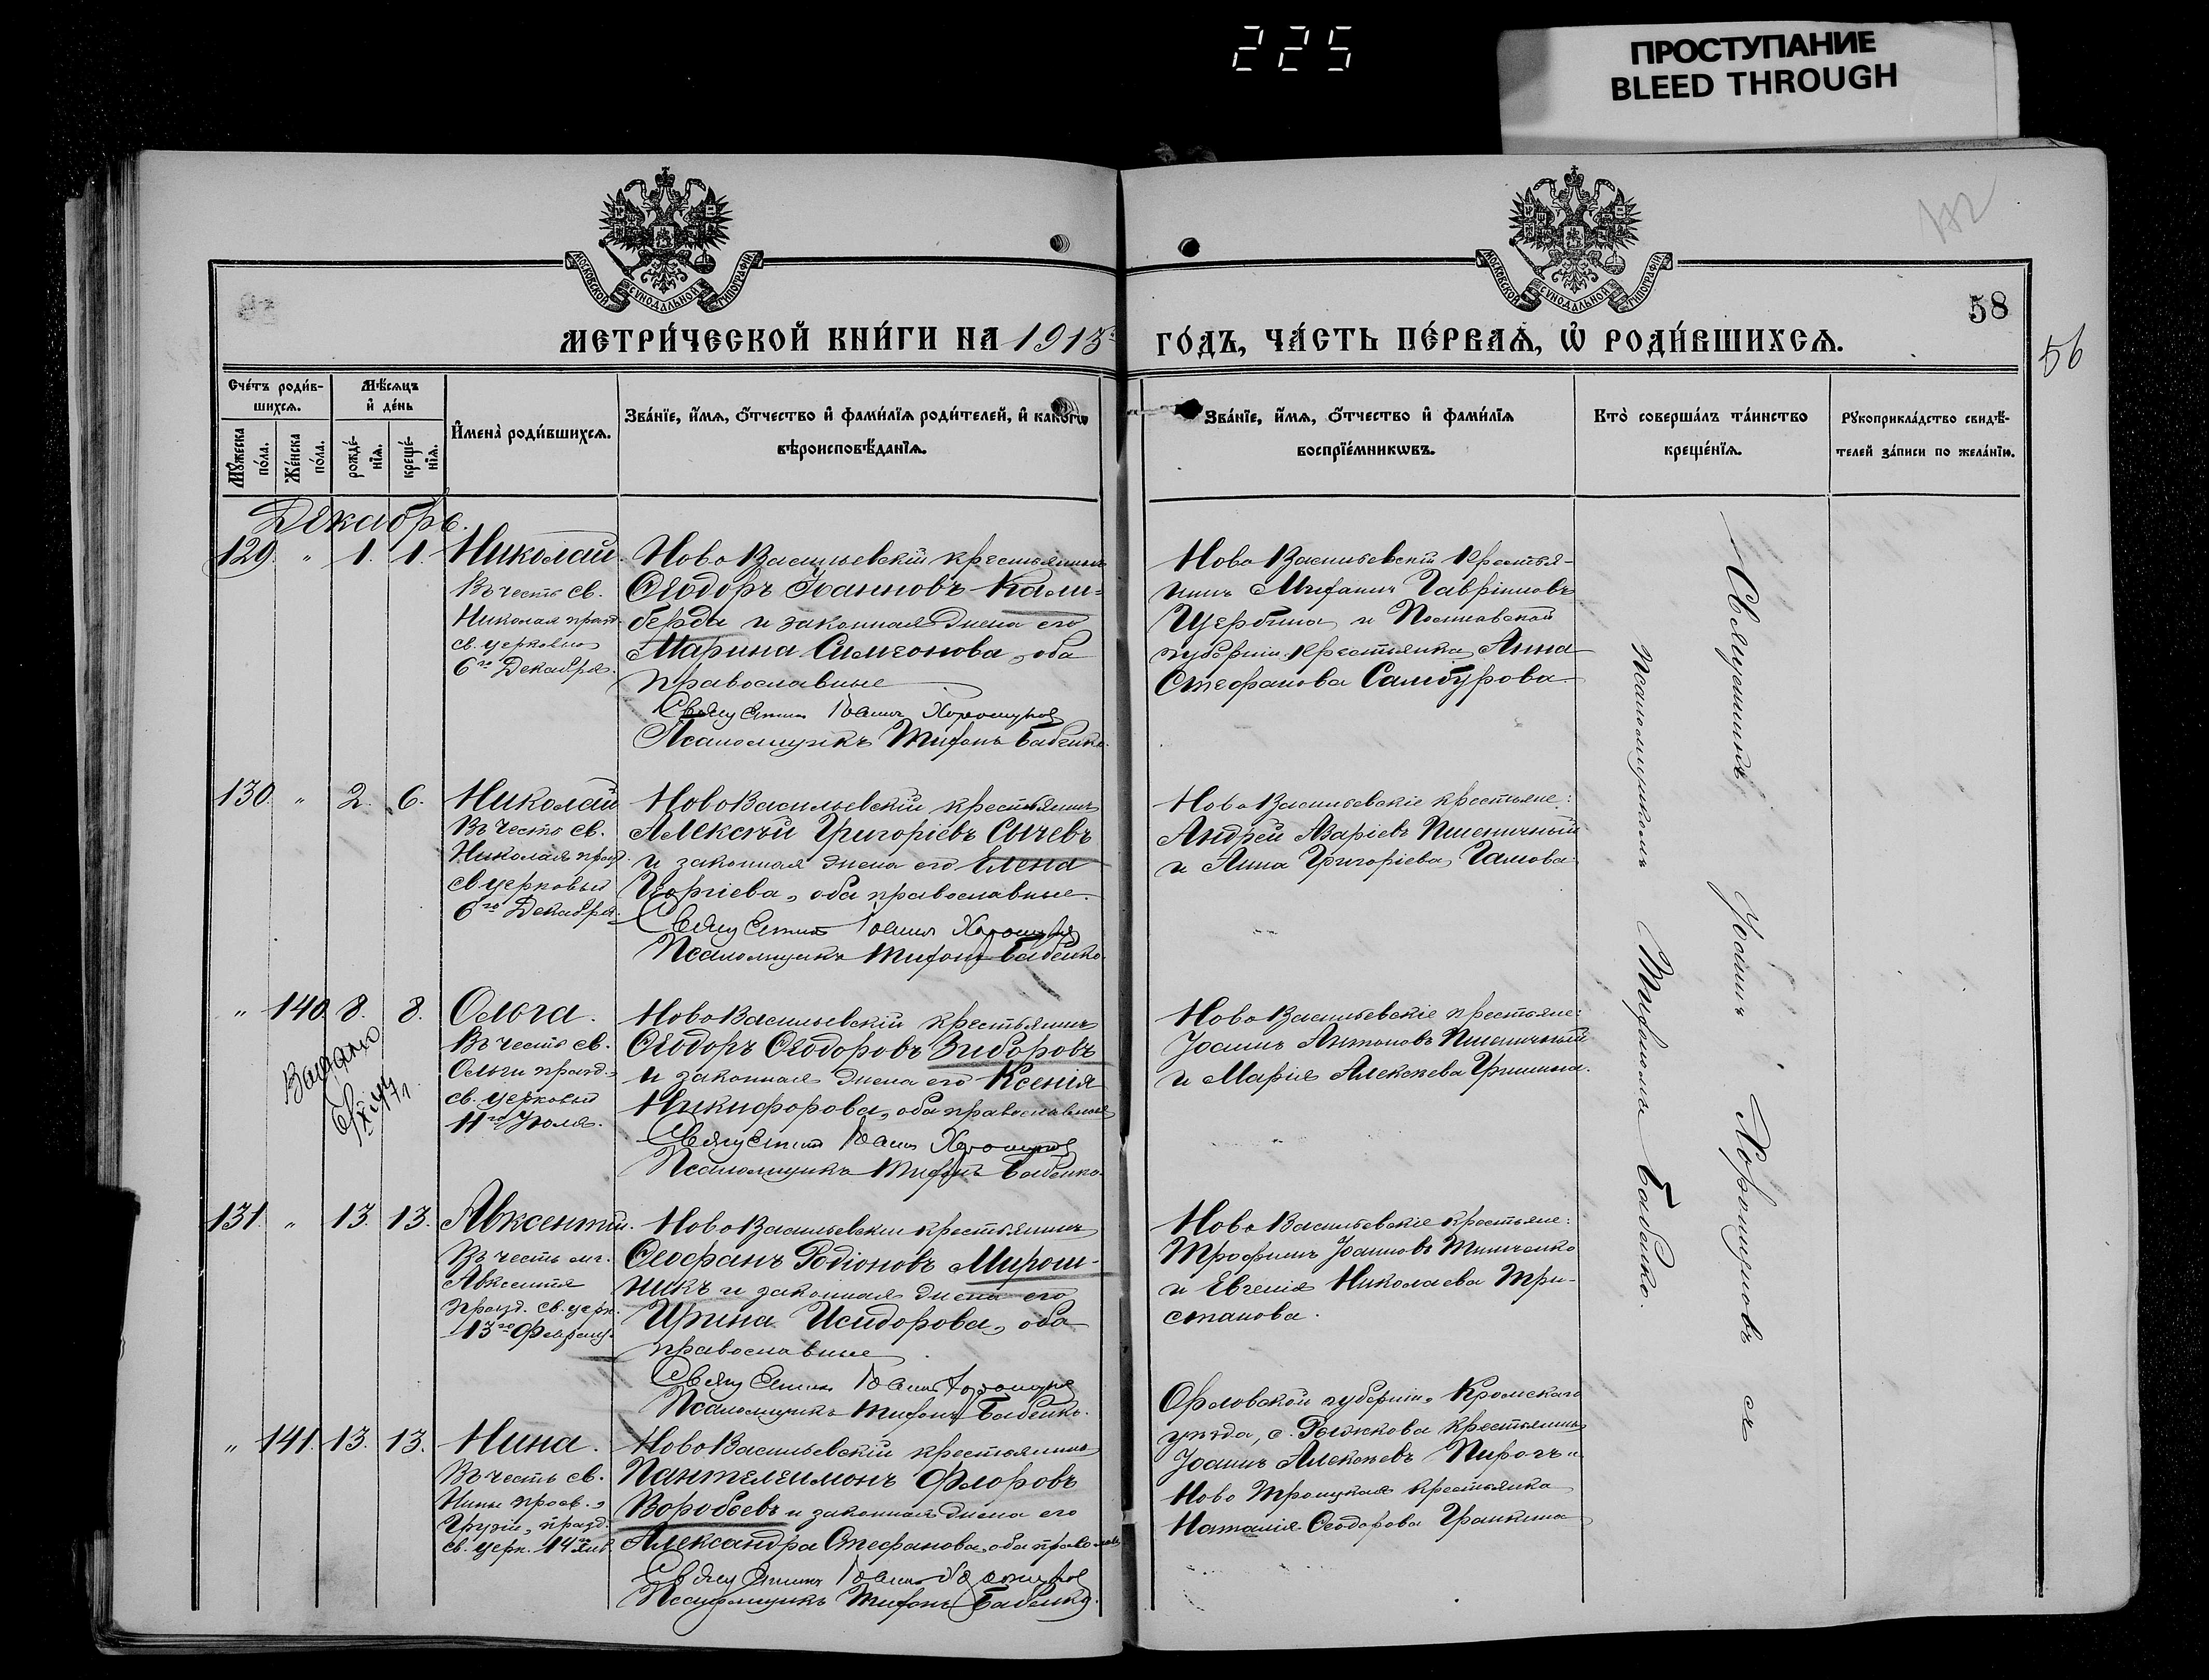 225
ПРОСТУПАНИЕ
BLEED THROUGH
МОСКОВСКОЙ СѴНОДАЛЬНОЙ ТИПОГРАФІИ
МОСКОВСКОЙ СѴНОДАЛЬНОЙ ТИПОГРАФІИ
58
56
МЕТРИ́ЧЕСКОЙ КНИ́ГИ НА 1915 ГО́ДЪ, ЧА́СТЬ ПЕ́РВАѦ, Ѡ҆ РОДИ́ВШИХСѦ.
Сче́тъ роди́в-
шихсѧ.
Мꙋжеска
по́ла.
Же́нска
по́ла.
Мѣ́сѧцъ
и҆ де́нь
рожде́-
нїѧ.
креще́-
нїѧ.
И҆мена̀ роди́вшихсѧ.
Зва́нїе, и҆́мѧ, ѻ҆́тчество и҆ фами́лїѧ роди́телей, и҆ како́гѡ
вѣроисповѣ́данїѧ.
Зва́нїе, и҆́мѧ, ѻ҆́тчество и҆ фами́лїѧ
воспрїе́мникѡвъ.
Кто̀ соверша́лъ та́инство
креще́нїѧ.
Рꙋкоприкла́дство свидѣ́-
телей за́писи по жела́нїю.
Декабрь.
129. " 1. 1. Николай.
Въ честь св.
Николая празд.
св. церковью
6го Декабря.
Ново Васильевскій крестьянинъ
Ѳеодоръ Іоанновъ Кали-
берда и законная жена его
Марина Симеонова, оба
православные
Священникъ Іоаннъ Хорошуновъ
Псаломщикъ Тифонъ Бабенко.
Ново Васильевскій крестья-
нинъ Гавріиловъ
Щербина и Полтавской
губерніи крестьянка Анна
Стефанова Самбурова.
130. " 2. 6. Николай
Въ честь св.
Николая празд.
св церковью
6го Декабря.
Ново Васильевскій крестьянинъ
Алексѣй Григоріевъ Сычевъ
и законная жена его Елена
Георгіева, оба православные.
Священникъ Іоаннъ Хорошуновъ
Псаломщикъ Тифонъ Бабенко.
Ново Васильевскіе крестьяне:
Андрей Азаріевъ Пшеничный
и Анна Григоріева Гамова
" 140 8. 8. Ольга.
Въ честь св.
Ольги празд.
св. церковью
11го Іюля.
Ново Васильевскій крестьянинъ
Ѳеодоръ Ѳеодоровъ Зиборовъ
и законная жена его Ксенія
Никифорова, оба православные
Священникъ Іоаннъ Хорошуновъ
Псаломщикъ Тифонъ Бабенко.
Ново Васильевскіе крестьяне:
Іоаннъ Антоновъ Пшеничный
и Марія Алексѣева Гришина.
131. " 13. 13. Авксентій.
Въ честь мч.
Авксентія
празд. св. церк.
13го
Ново Васильевскій крестьянинъ
Ѳеофанъ Родіоновъ Мирош-
никъ и законная жена его
Ирина Исидорова, оба
православные
Священникъ Іоаннъ Хорошуновъ
Псаломщикъ Тифонъ Бабенко.
Ново Васильевскіе крестьяне:
Трофимъ Іоанновъ Тимченко
и Евгенія Николаева Три-
станова.
" 141. 13. 13. Нина.
Въ честь св.
Нины просв.
Грузіи, празд.
св. церк. 14 Янв.
Ново Васильевскій крестьянинъ
Пантелеимонъ Флоровъ
Воробьевъ и законная жена его
Александра Стефанова, оба
Священникъ Іоаннъ Хорошуновъ
Псаломщикъ Тифонъ Бабенко.
Орловской губерніи, Кромскаго
уѣзда, с. Рыжкова крестьянинъ
Іоаннъ Алексѣевъ Пирогъ и
Ново Троицкая крестьянка
Наталія Ѳеодорова Гранкина
Священникъ Іоаннъ Хорошуновъ съ
псаломщикомъ Тифономъ Бабенко.